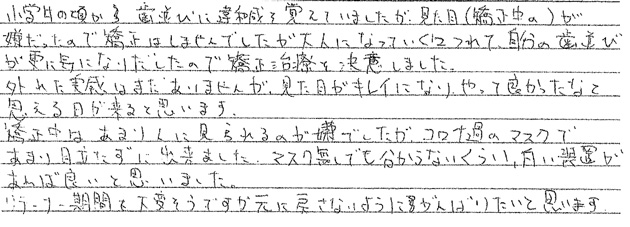 小学生の頃から歯並びに違和感を覚えていましたが、見た目(矯正中の)が
嫌だったので矯正はしませんでしたが大人になっていくにつれて、自分の歯並び
が更に気になりだしたので矯正治療を決意しました。
外れた実感はまだありませんが、見た目がキレイになり、やって良かったなと
思える日が来ると思います。
矯正中はあまり人に見られるのが嫌でしたが、コロナ過のマスクで
あまり目立たずに出来ました。マスク無しでも分からないくらい、白い装置が
あれば良いと思いました。
リテーナー期間も大変そうですが元に戻さないように頑がんばりたいと思います